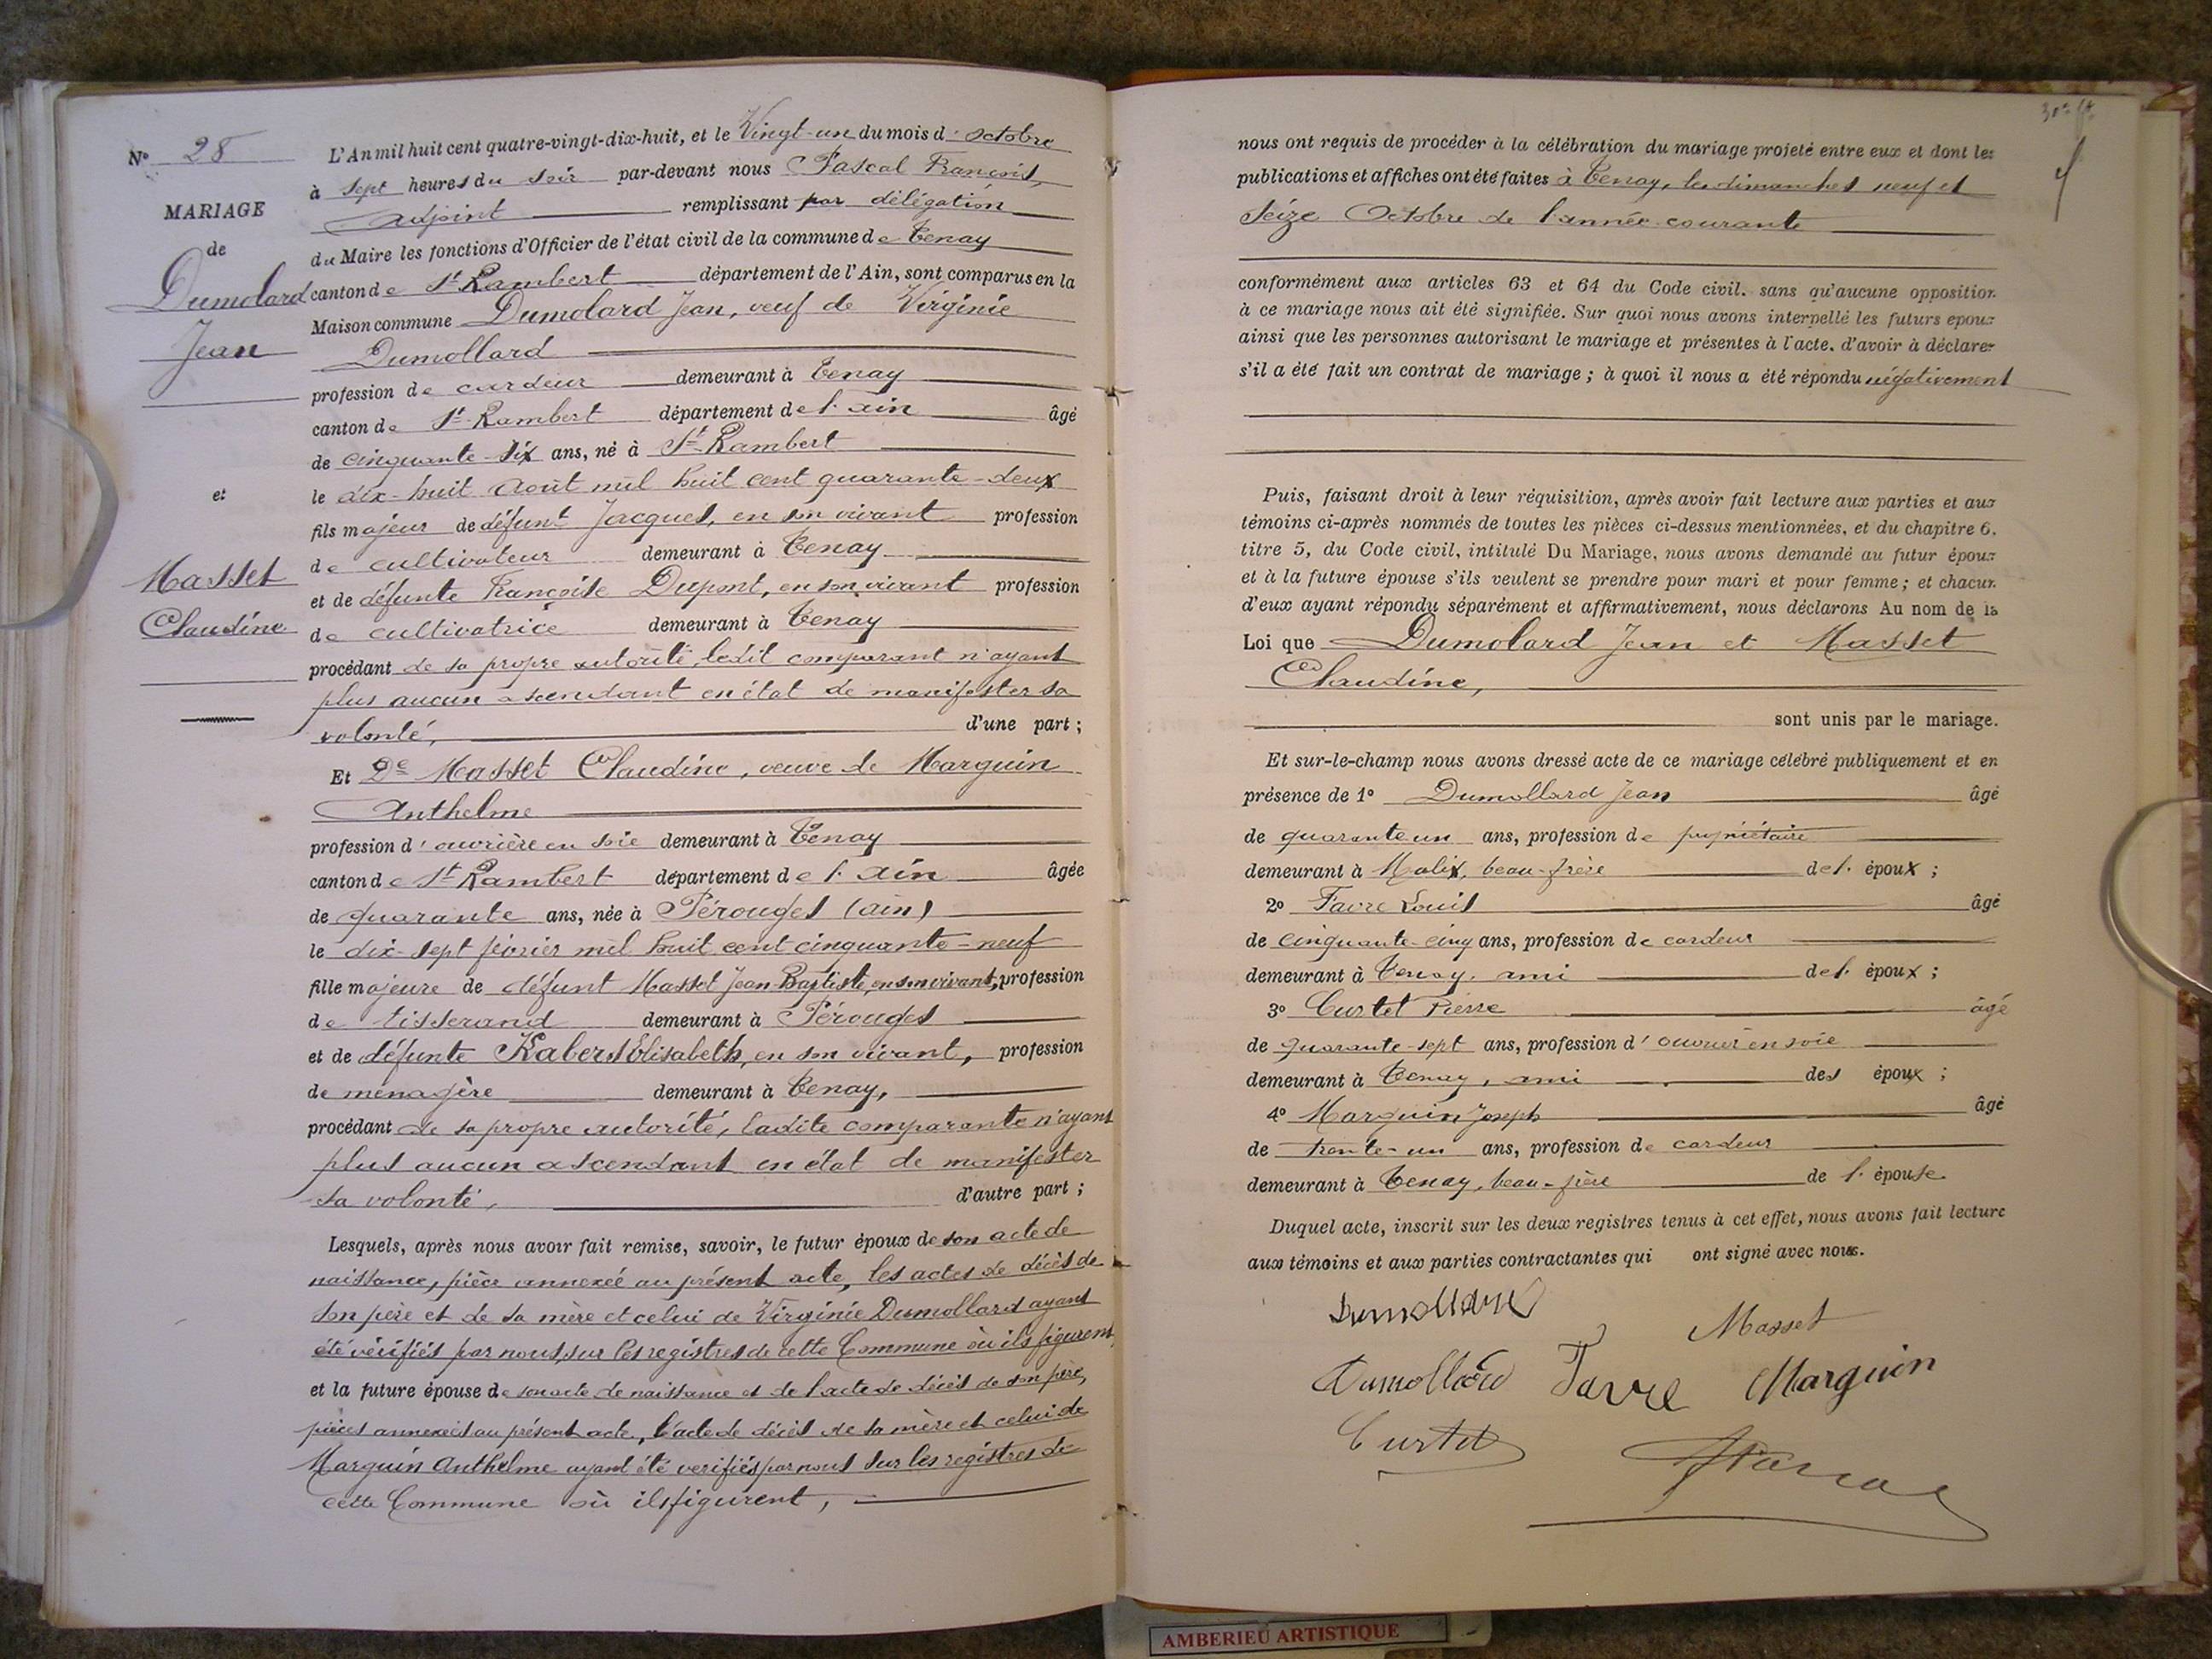 N° 28
MARIAGE
de
Dumolard
Jean
et
Masset
Claudine
L'An mil huit cent quatre-vingt-dix-huit, et le Vingt-un du mois d'octobre
à sept heures du soir par-devant nous Pascal François,
adjoint remplissant par délégation
du Maire les fonctions d'Officier de l'état civil de la commune de Tenay
canton de St Rambert département de l'Ain, sont comparus en la
Maison commune Dumolard Jean, veuf de Virginie
Dumollard
profession de cardeur demeurant à Tenay
canton de St-Rambert département de l'ain âgé
de cinquante-six ans, né à St-Rambert
le dix-huit août mil huit cent quarante-deux
fils majeur de défunt Jacques, en son vivant profession
de cultivateur demeurant à Tenay
et de défunte Françoise Dupont, en son vivant profession
de cultivatrice demeurant à Tenay
procédant de sa propre autorité, ledit comparant n'ayant
plus aucun ascendant en état de manifester sa
volonté, d'une part ;
Et De Masset Claudine, veuve de Marguin
Anthelme
profession d'ouvrière en soie demeurant à Tenay
canton de St Rambert département de l'ain âgée
de quarante ans, née à Pérouges (ain)
le dix-sept février mil huit cent cinquante-neuf
fille majeure de défunt Masset Jean-Baptiste, en son vivant, profession
de tisserand demeurant à Pérouges
et de défunte Elisabeth, en son vivant, profession
de ménagère demeurant à Tenay,
procédant de sa propre autorité, ladite comparante n'ayant
plus aucun ascendant en état de manifester
sa volonté, d'autre part ;
Lesquels, après nous avoir fait remise, savoir, le futur époux de son acte de
naissance, pièce annexée au présent acte, les actes de décès de
son père et de sa mère et celui de Virginie Dumollard ayant
été vérifiés par nous, sur les registres de cette Commune où ils figurent,
et la future épouse de son acte de naissance et de l'acte de décès de son père,
pièces annexées au présent acte, l'acte de décès de sa mère et celui de
Marguin Anthelme ayant été verifiés par nous sur les registres de
cette Commune où ils figurent,
nous ont requis de procéder à la célébration du mariage projeté entre eux et dont les
publications et affiches ont été faites à Tenay, les dimanches neuf et
seize Octobre de l'année courante
conformément aux articles 63 et 64 du Code civil. sans qu'aucune opposition
à ce mariage nous ait été signifiée. Sur quoi nous avons interpellé les futurs epoux
ainsi que les personnes autorisant le mariage et présentes à l'acte. d'avoir à déclarer
s'il a été fait un contrat de mariage ; à quoi il nous a été répondu négativement
Puis, faisant droit à leur réquisition, après avoir fait lecture aux parties et aux
témoins ci-après nommés de toutes les pièces ci-dessus mentionnées, et du chapitre 6.
titre 5, du Code civil, intitulé Du Mariage, nous avons demandé au futur époux
et à la future épouse s'ils veulent se prendre pour mari et pour femme ; et chacun
d'eux ayant répondu séparément et affirmativement, nous déclarons Au nom de la
Loi que Dumolard Jean et Masset
Claudine,
sont unis par le mariage.
Et sur-le-champ nous avons dressé acte de ce mariage célébré publiquement et en
présence de 1° Dumollard Jean âgé
de quarante un ans, profession de propriétaire
demeurant à Malix, beau-frère de l'époux ;
2° Favre Louis âgé
de cinquante-cinq ans, profession de cardeur
demeurant à Tenay, ami de l'époux ;
3° Curtet Pierre âgé
de quarante-sept ans, profession d'ouvrier en soie
demeurant à Tenay, ami des époux ;
4° Marguin Joseph âgé
de trente-un ans, profession de cardeur
demeurant à Tenay, beau-frère de l'épouse
Duquel acte, inscrit sur les deux registres tenus à cet effet, nous avons fait lecture
aux témoins et aux parties contractantes qui ont signé avec nous.
Dumollard
Masset
Dumollard Favre Marguin
Curtet
AMBERIEU ARTISTIQUE